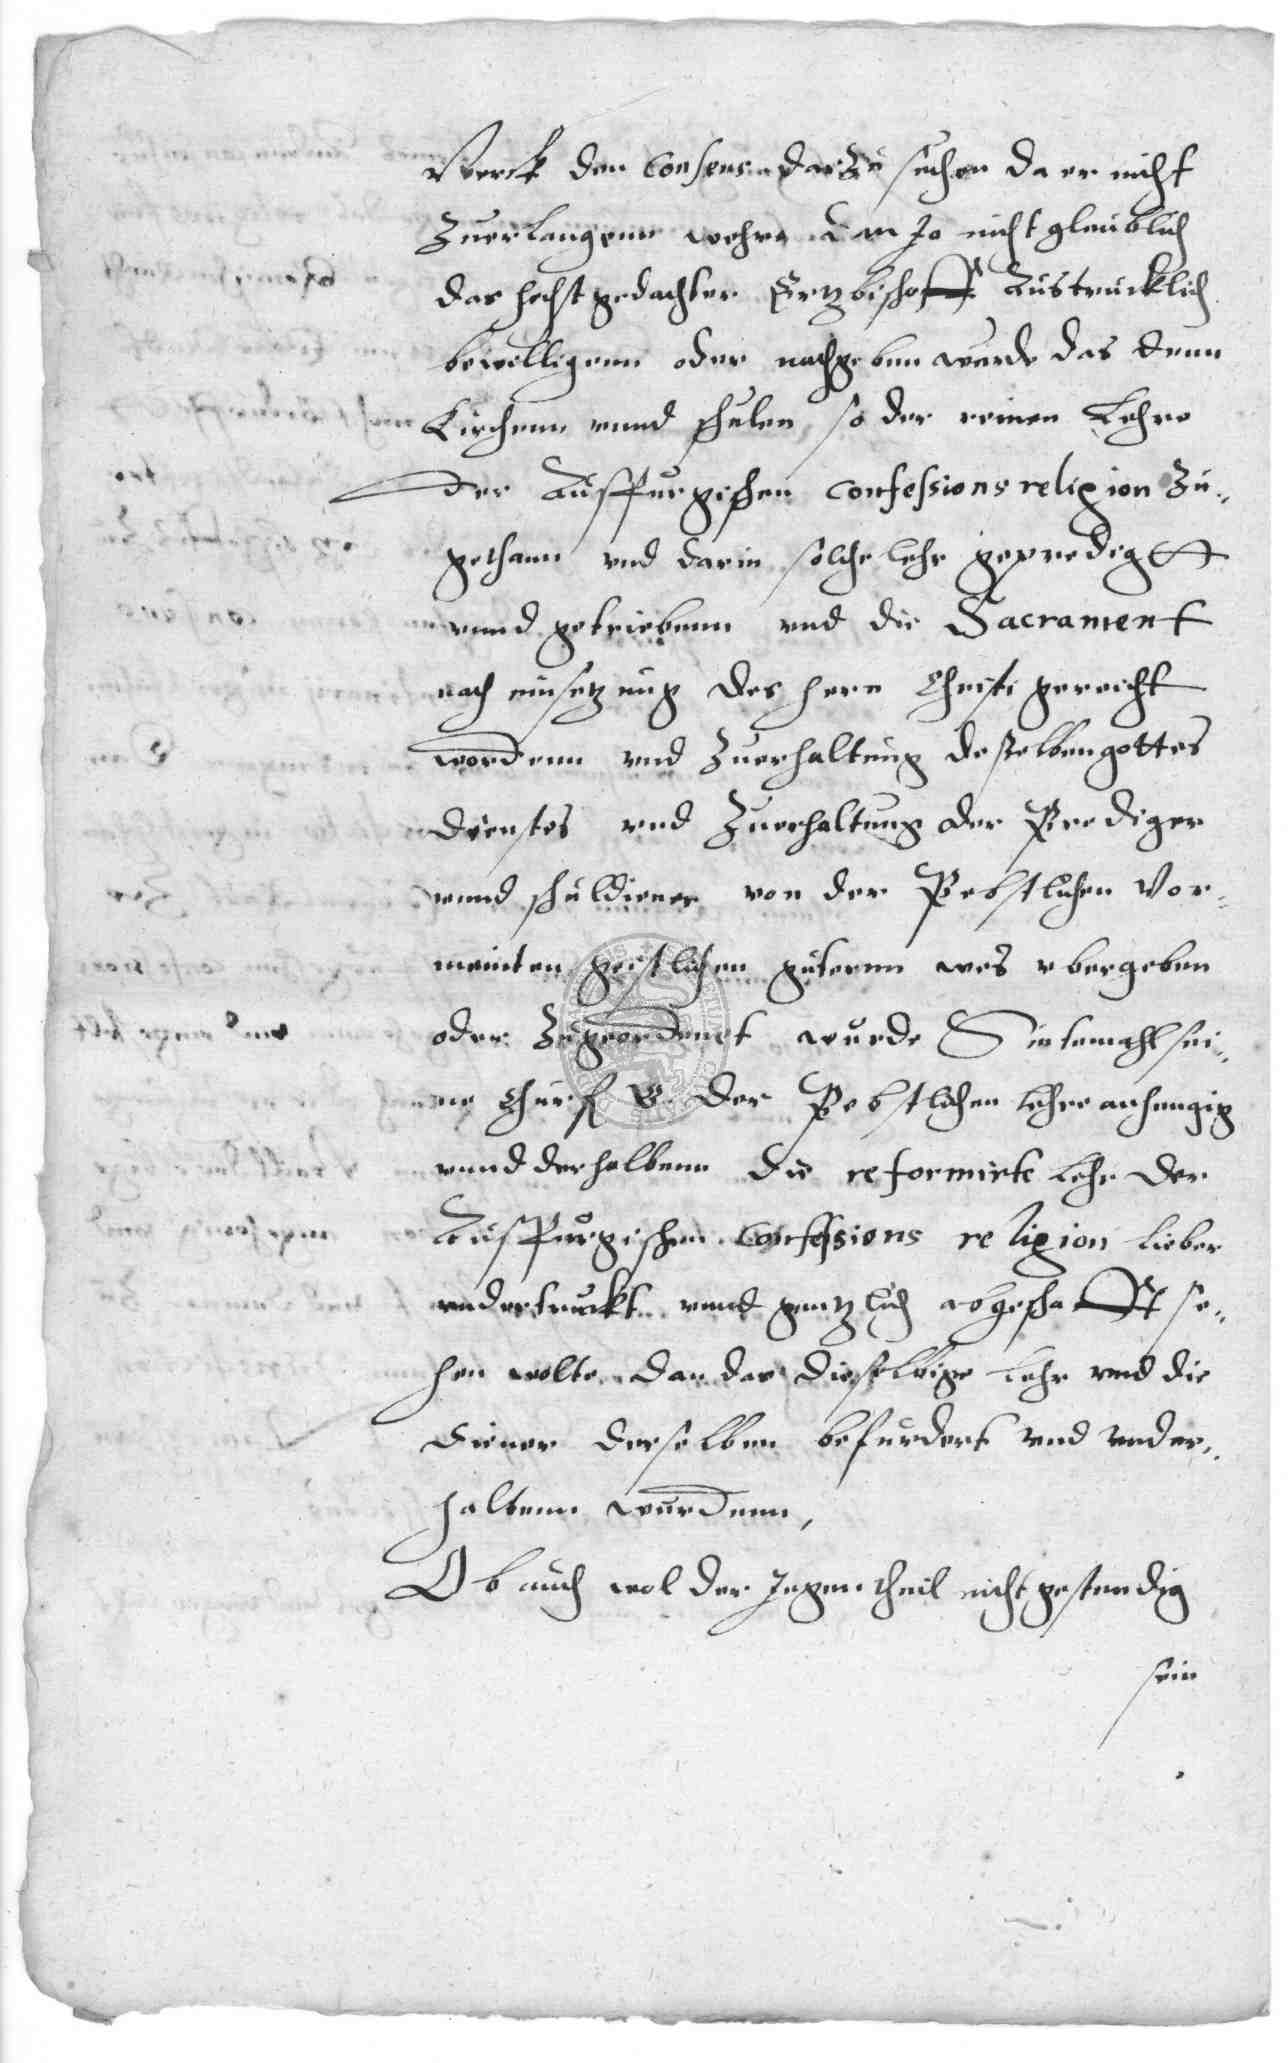 Werck den Consens darzu suchen da er nicht
Zuerlangenn wehre dan Je nicht gleublich
das hochstgedachter Ertzbischoff Austrucklich
bewilligenn oder nachgeben wurde das denn
Kirchenn vnnd schulen so der reinen Lehre
der Ausspurgischen confessions religion Zu„
gethann vnd darin solche lehr gepredigtt
vnnd getriebenn vnd die Sacrament
nach einsetzung des hern Christi gereicht
wordenn vnd Zuerhaltung desselben gottes
dienstes vnd Zuerhaltung der Prediger
vnnd schuldiener von der Pebstlichen Vor„
meinten geistlichen guternn wes vbergeben
oder Zugeordenet wurde Sintemahl sei„
ne Churf G. der Pebstlichen lehre anhengig
vnnd derhalbenn die reformirte lehr der
Ausspurgischen Confessions religion lieber
vndertruckt vnnd gentzlich abgeschafft se„
hen wolte dan das dieselbige lehr vnd die
diener derselben befurdert vnd vnder„
haltenn wurdenn,
Ob auch wol der Jegentheil nicht gestendig
sein